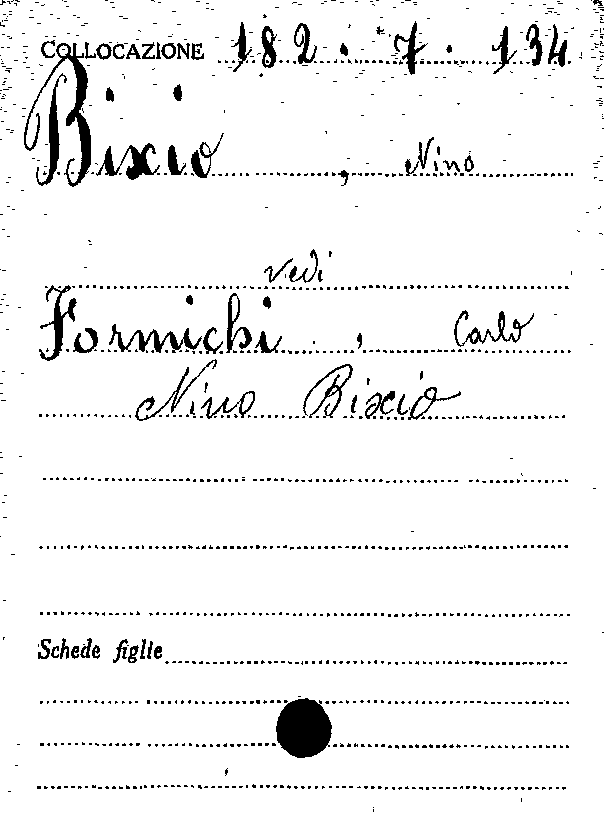 COLLOCAZIONE 182. 7. 134
Bixio, Nino
vedi
Formichi, Carlo
Nino Bixio
Schede figlie